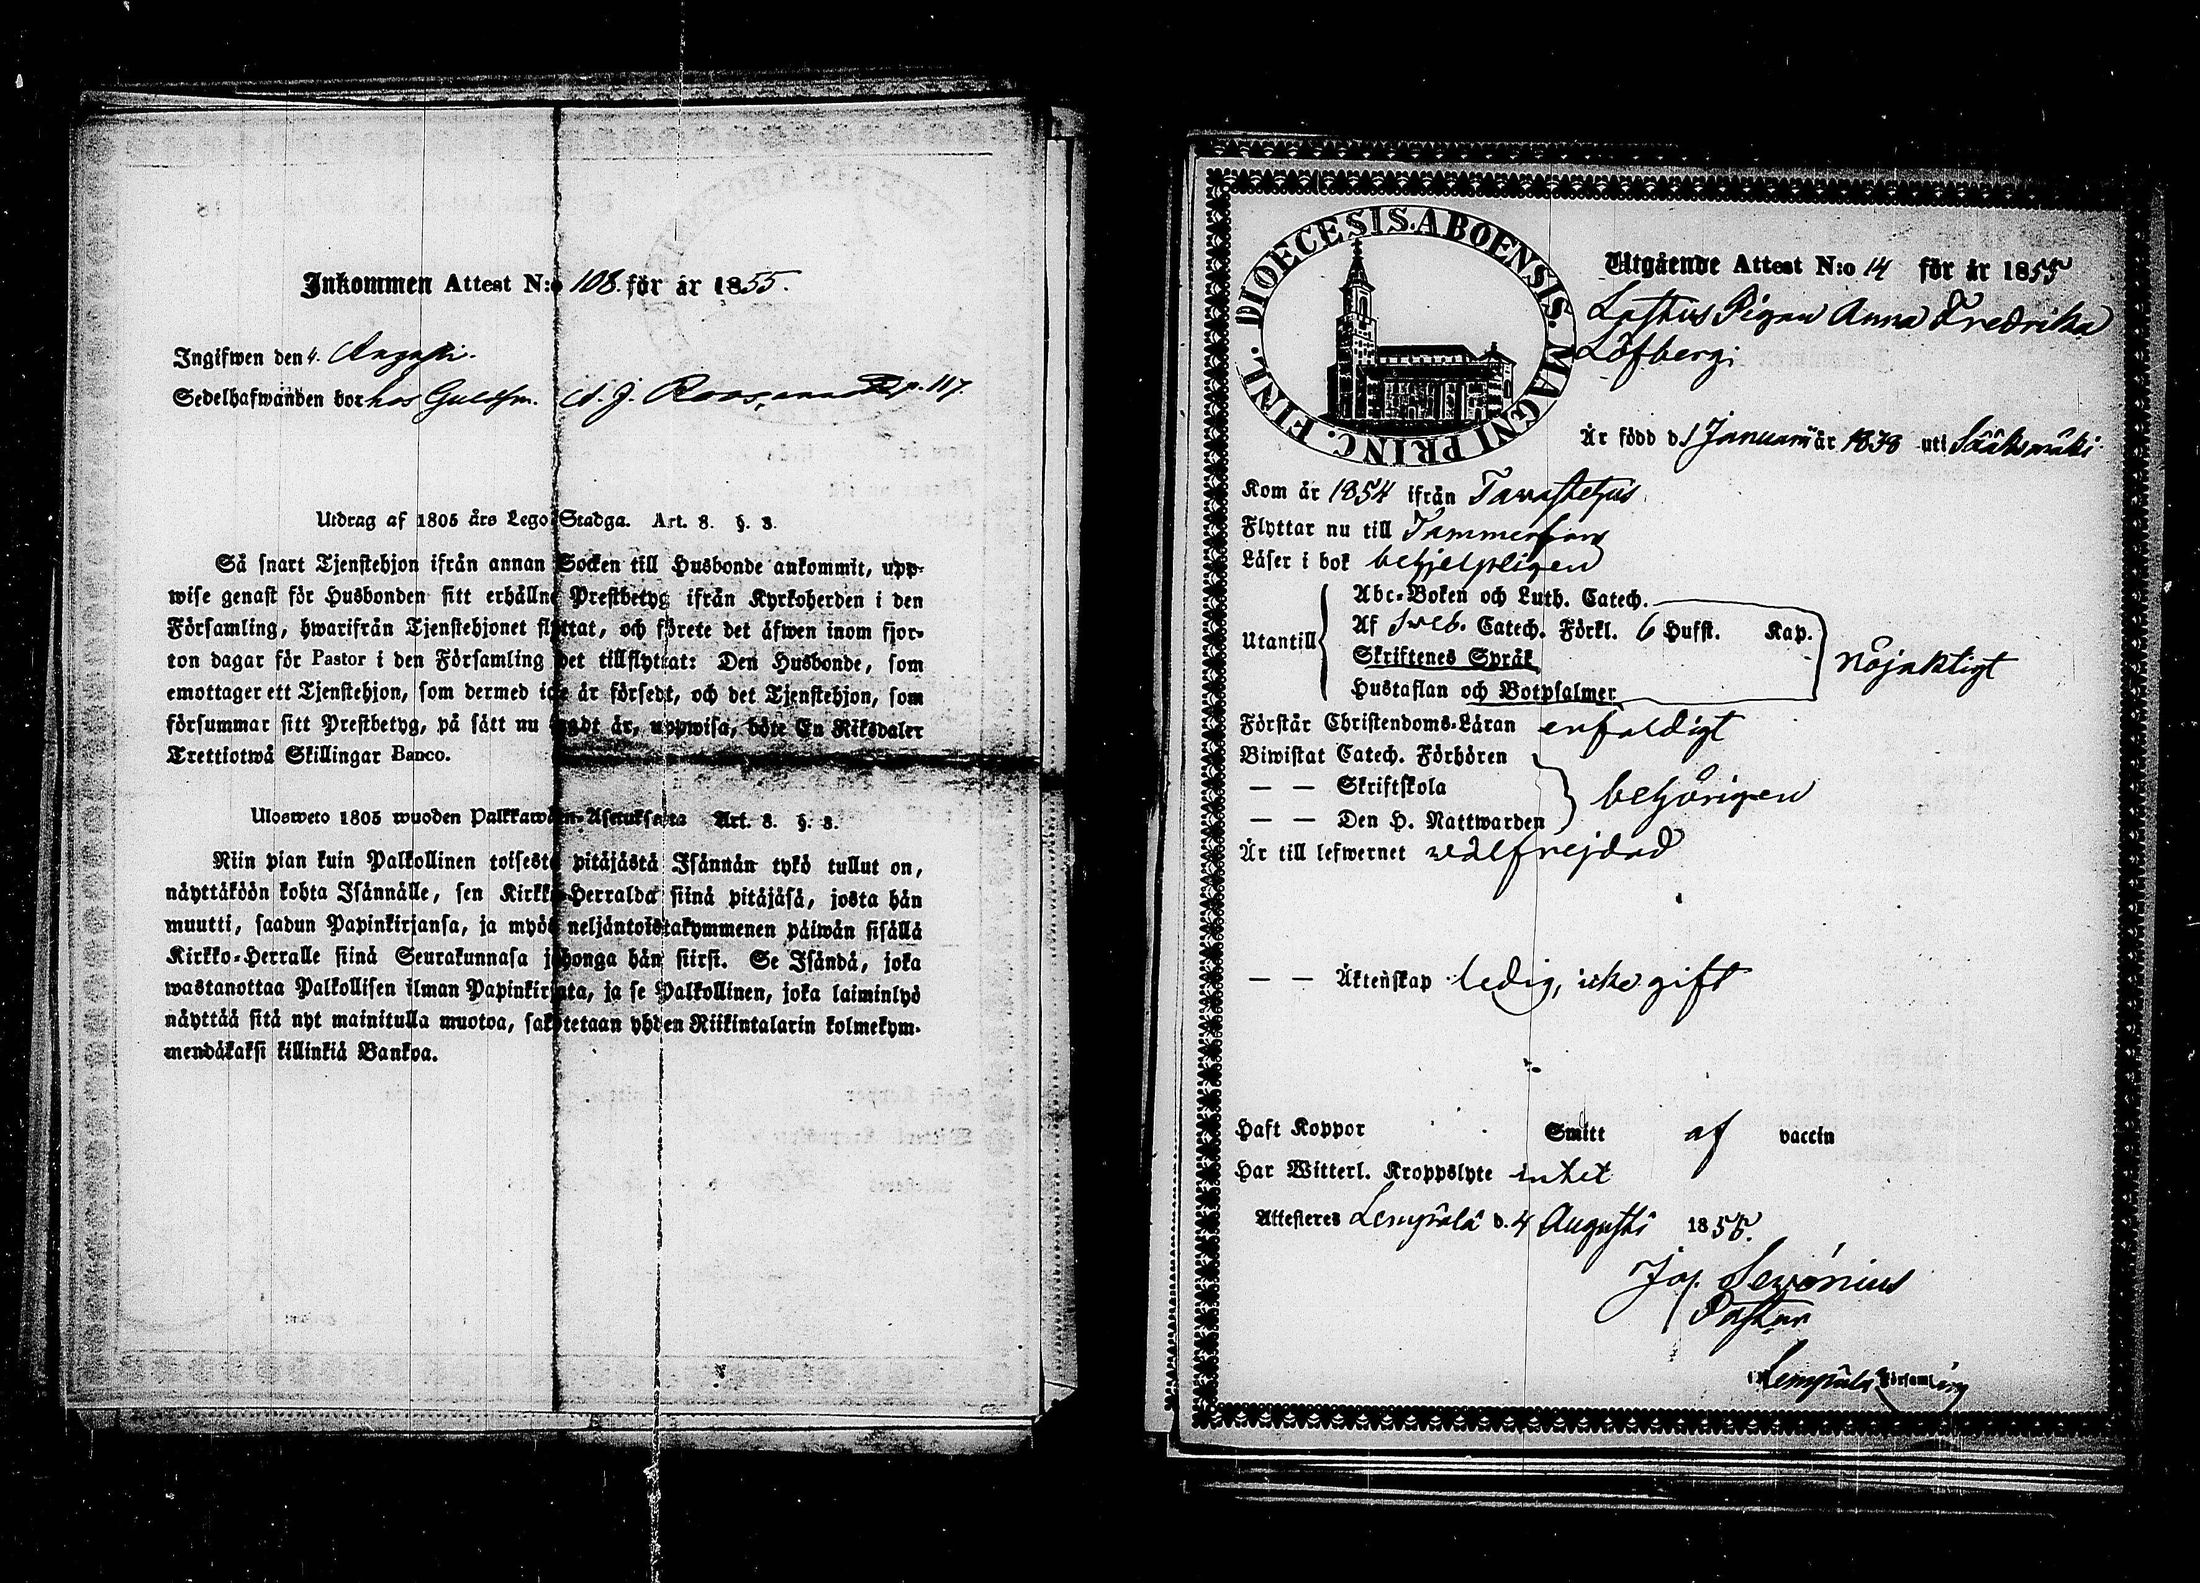 Inkommen Attest N:o 108. för år 1855.
Ingifwen den 4. Augusti.
Sedelhafwanden bor hos Guldsm. A. J. Roos, p. 117.
Utdrag af 1805 års Lego-Stadga. Art. 8. §. 3.
Så snart Tjenstehjon ifrån annan Socken till Husbonde ankommit, upp-
wise genast för Husbonden sitt erhållne Prestbetyg ifrån Kyrkoherden i den
Församling, hwarifrån Tjenstehjonet flyttat, och förete det äfwen inom fjor-
ton dagar för Pastor i den Församling det tillflyttat: Den Husbonde, som
emottager ett Tjenstehjon, som dermed icke är försedt, och det Tjenstehjon, som
försummar sitt Prestbetyg, på sätt nu sagdt är, uppwisa, böte En Riksdaler
Trettiotwå Skillingar Banco.
Ulosweto 1805 wuoden Palkkawäen-Asetuksesta Art. 8. §. 3.
Niin pian kuin Palkollinen toisesta pitäjästä Isännän tykö tullut on,
näyttäköön kohta Isännälle, sen Kirkko-Herralda siinä pitäjäsä, josta hän
muutti, saadun Papinkirjansa, ja myös neljäntoistakymmenen päiwän sisällä
Kirkko-Herralle siinä Seurakunnasa johonga hän siirsi. Se Isändä, joka
wastanottaa Palkollisen ilman Papinkirjata, ja se Palkollinen, joka laiminlyö
näyttää sitä nyt mainitulla muotoa, sakotetaan yhden Riikintalarin kolmekym-
mendäkaksi killinkiä Bankoa.
DIOECESIS. ABOENSIS. MAGNI PRINC. FINL.
Utgående Attest N:o 14 för år 1855
Lösthus Pigan Anna Fredrika
Löfberg;
Är född d. 1 Januarii år 1838 uti Sääksmäki
Kom år 1854 ifrån Tavastehus
Flyttar nu till Tammerfors
Läser i bok behjelpligen
Utantill
Abc-Boken och Luth. Catech.
Af Sveb. Catech. Förkl. 6 Hufst. Kap.
Skriftenes Språk
Hustaflan och Botpsalmer
nöjaktigt
Förstår Christendoms-Läran enfaldigt
Biwistat Catech. Förhören
— — Skriftskola
— — Den H. Nattwarden
behörigen
Är till lefwernet välfrejdad
— — Äktenskap ledig, icke gift
Haft Koppor Smitt af vaccin
Har Witterl. Kroppslyte intet
Attesteras Lempälä d. 4 Augusti 1855.
Jos. Sevónius
Pastor
i Lempälä Församling